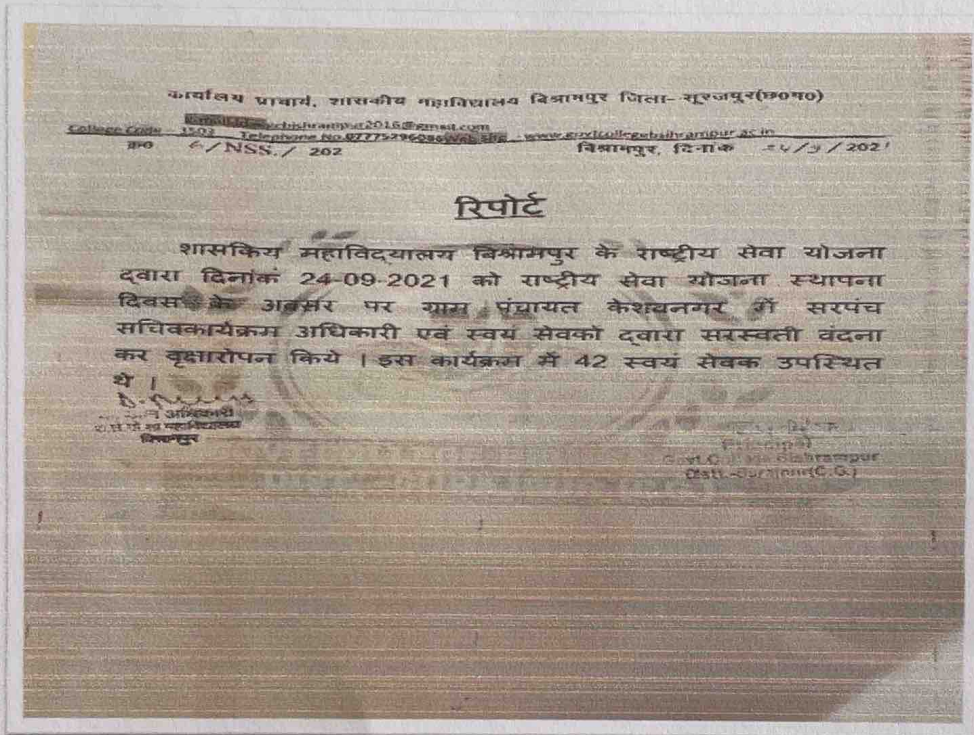 कार्यालय प्राचार्य, शासकीय महाविद्यालय बिश्रामपुर जिला- सूरजपुर(छ०ग०)
College Code - 3503 Telephone No.07775296086 Web site - www.govtcollegebsihrampur.ac.in
क्र० 6/NSS./ 202 बिश्रामपुर, दिनांक 24/9/2021
रिपोर्ट
शासकिय महाविद्यालय बिश्रामपुर के राष्ट्रीय सेवा योजना
द्वारा दिनांकं 24-09-2021 को राष्ट्रीय सेवा योजना स्थापना
दिवस के अवसर पर ग्राम पंचायत केशवनगर में सरपंच
सचिवकार्यक्रम अधिकारी एवं स्वयं सेवको द्वारा सरस्वती वंदना
कर वृक्षारोपन किये । इस कार्यक्रम में 42 स्वयं सेवक उपस्थित
थे ।
अधिकारी
महाविद्यालय
बिश्रामपुर
(Principal)
Govt.College Bishrampur
Distt.-Surajpur(C.G.)